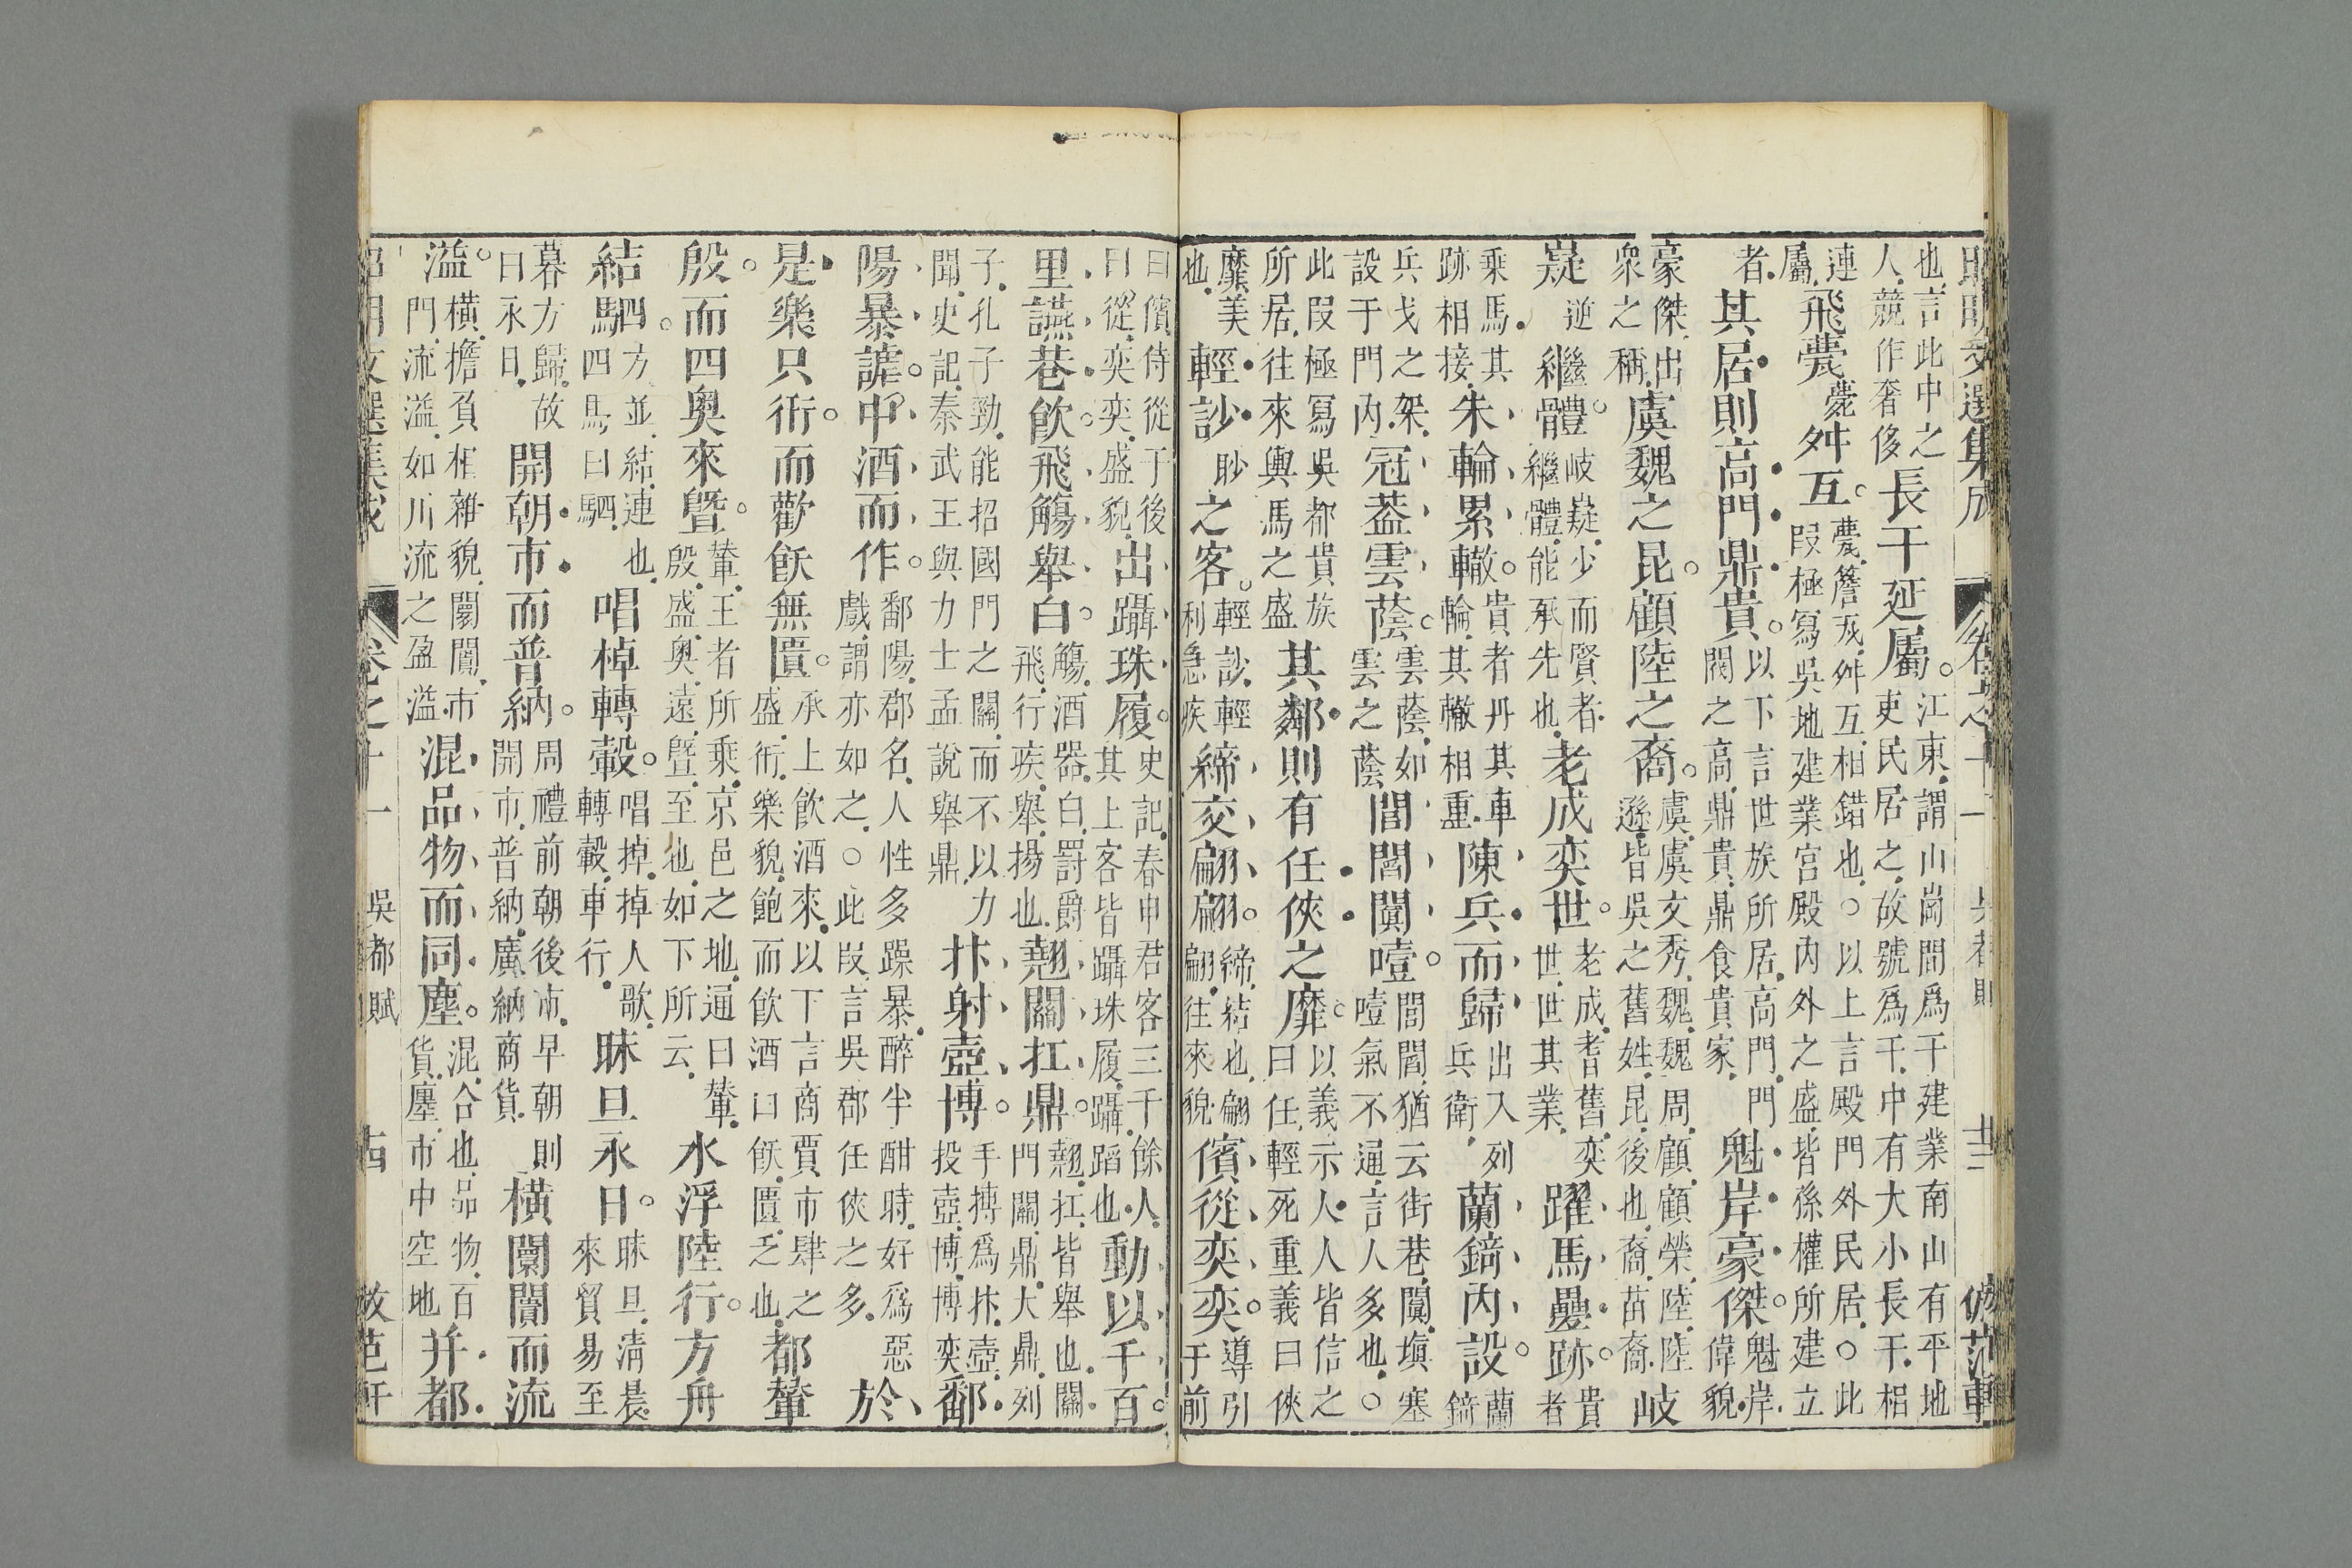 也言此中之長干延屬江東謂山崗間爲干建業南山有平地
人競作奢侈吏民居之故號爲干中有大小長干相
連飛甍甍舛互甍簷瓦舛互相錯也○以上言殿門外民居○此
屬段極寫吳地建業宮殿內外之盛皆孫權所建立
者其居則高門鼎貴以下言世族所居高門門魁岸豪傑魁岸
閥之高鼎貴鼎食貴家偉貌
豪傑出虞魏之昆顧陸之裔虞虞文秀魏魏周顧顧榮陸陸岐
衆之稱遜皆吳之舊姓昆後也裔苗裔
嶷逆繼體岐嶷少而賢者老成奕世老成耆舊奕躍馬疊跡貴
繼體能承先也世世其業者
乘馬其朱輪累轍貴者丹其車陳兵而歸出入列蘭錡內設蘭
跡相接輪其轍相重兵衛錡
兵戈之架冠蓋雲蔭雲蔭如閭閻闐噎閭閻猶云街巷闐塡塞
設于門內雲之蔭噎氣不通言人多也○
此段極寫吳都貴族其鄰則有任俠之靡以義示人人皆信之
所居往來輿馬之盛曰任輕死重義曰俠
靡美輕訬眇之客輕訬輕締交翩翩締結也翩儐從奕奕導引
也利急疾翩往來貌于前
曰儐侍從于後出躡珠履史記春申君客三千餘人動以千百
曰從奕奕盛貌其上客皆躡珠履躡蹈也
里讌巷飮飛觴舉白觴酒器白罰爵翹關扛鼎翹扛皆舉也關
飛行疾舉揚也門關鼎大鼎列
子孔子勁能招國門之關而不以力抃射壺博手搏爲抃壺鄱
聞史記秦武王與力士孟說舉鼎投壺博博奕
陽暴謔中酒而作鄱陽郡名人性多躁暴醉半酣時好爲惡於
戲謂亦如之○此段言吳郡任俠之多
是樂只衎而歡飫無匱承上飮酒來以下言商賈市肆之都輦
盛衎樂貌飽而飮酒曰飫匱乏也
殷而四奧來曁輦王者所乘京邑之地通曰輦水浮陸行方舟
殷盛奧遠曁至也如下所云
結駟四方並結連也唱棹轉轂唱掉掉人歌昧旦永日昧旦清晨
四馬曰駟轉轂車行來貿易至
暮方歸故開朝市而普納周禮前朝後市早朝則橫闤闠而流
日永日開市普納廣納商貨
溢橫擔負相雜貌闤闠市混品物而同廛混合也品物百幷都
門流溢如川流之盈溢貨廛市中空地
卷之十一
吳都賦